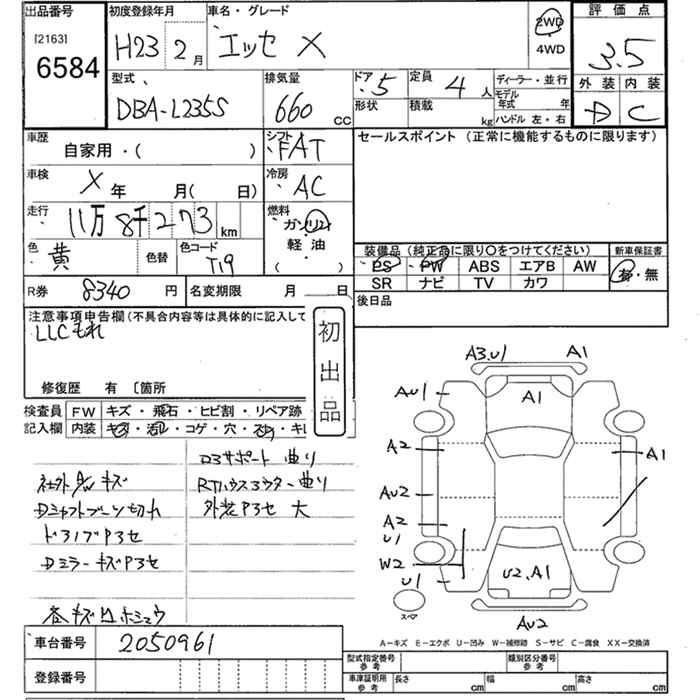 出品番号
[2163]
6584
初度登録年月
H23 2月
車名・グレード
エッセ X
2WD
4WD
評価点
3.5
外装 内装
D C
型式
DBA-L235S
排気量
660 cc
ドア 5
形状
定員 4人
積載 kg
ディーラー・並行
モデル年式 年
ハンドル 左・右
車歴
自家用・( )
シフト
FAT
セールスポイント (正常に機能するものに限ります)
車検
X年 月( 日)
冷房
AC
走行
11万8千273 km
燃料
ガソリン
軽油
( )
色
黄
色替
色コード
T19
装備品 (純正品に限り○をつけてください)
新車保証書
PS PW ABS エアB AW
SR ナビ TV カワ
有・無
R券 8340 円
名変期限 月 日
後日品
注意事項申告欄 (不具合内容等は具体的に記入して
LLCもれ
初出品
修復歴 有 〔箇所
検査員 FW キズ・飛石・ヒビ割・リペア跡
記入欄 内装 キズ・汚れ・コゲ・穴・スレ・キレ
D3サポート 曲り
社外AW キズ
Dシャフトブーツ切れ
外装P3セ 大
DミラーキズP3セ
A3.U1
A1
AU1
A1
A2
A1
AU2
A2
U1
W2
U1
U2.A1
スペア
AU2
A-キズ E-エクボ U-凹み W-補修跡 S-サビ C-腐食 XX-交換済
車台番号 2050961
登録番号
型式指定番号 参考
類別区分番号 参考
車庫証明用 参考
長さ cm
幅 cm
高さ cm